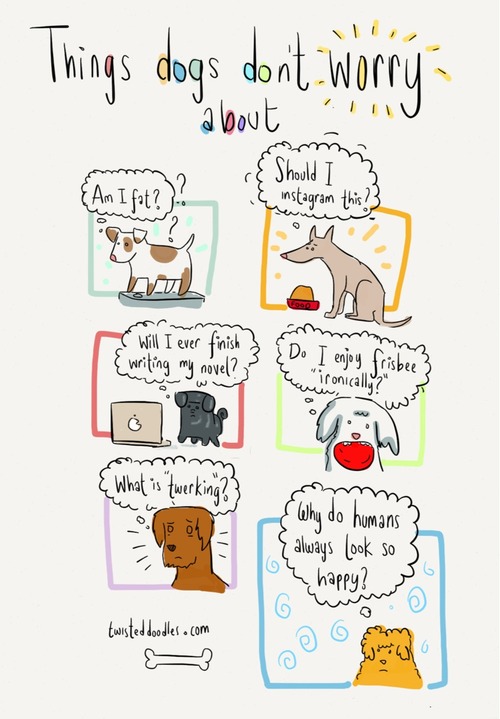 Things dogs don't worry
about
Am I fat?
?
?
Should I
instagram this?
FOOD
Will I ever finish
writing my novel?
Do I enjoy frisbee
"ironically?"
What is "twerking"?
Why do humans
always look so
happy?
twisteddoodles.com